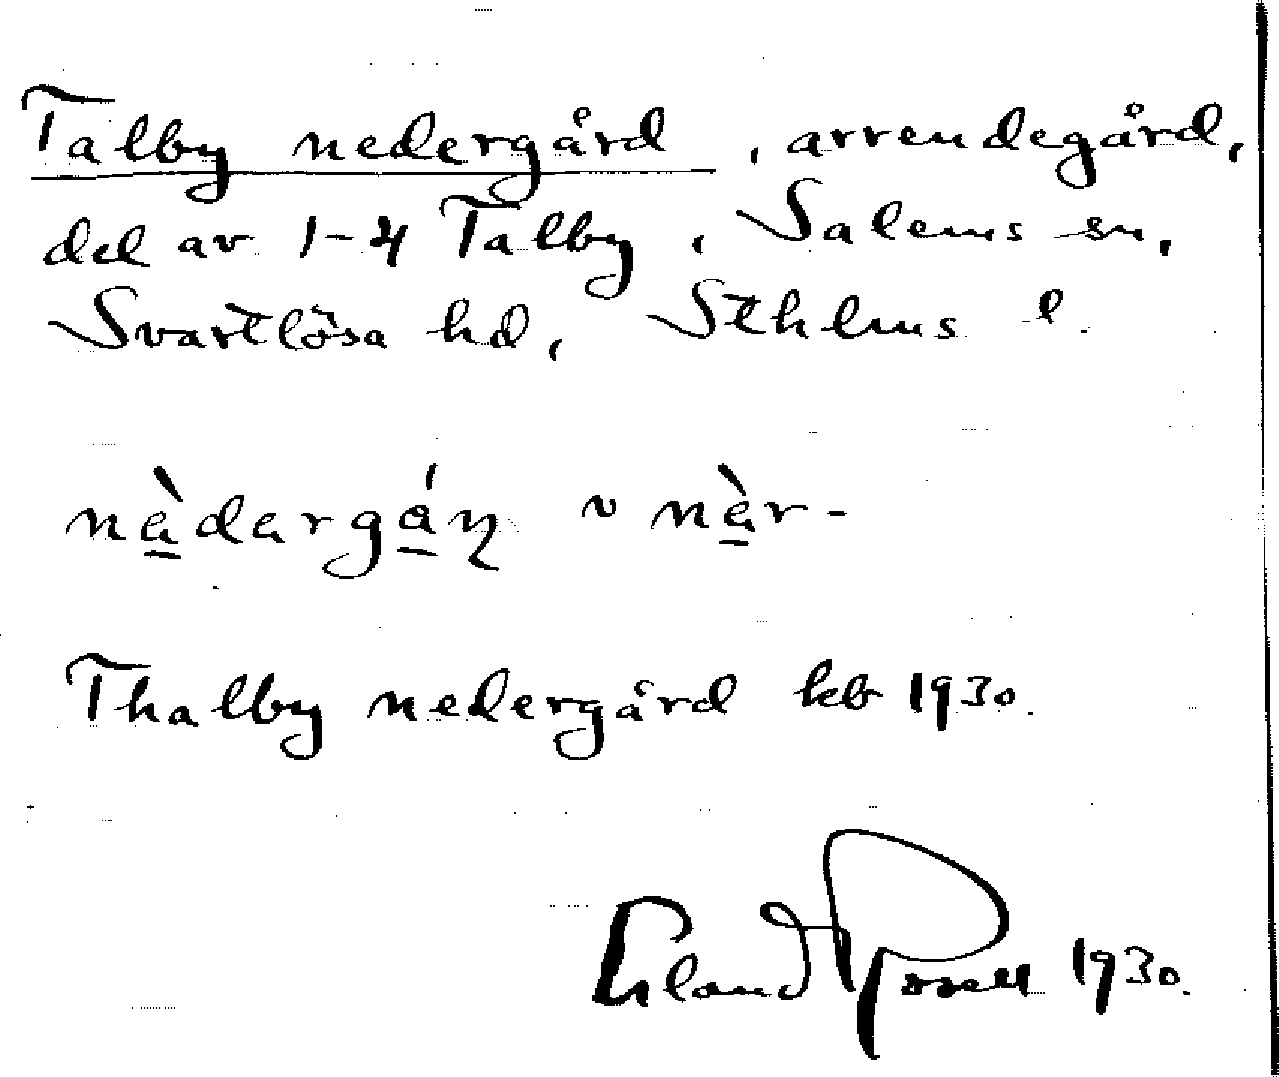 Talby nedergård, arrendegård,
del av 1-4 Talby, Salems sn,
Svartlösa hd, Sthlms l.
nä̀dargá̱ɳ ~ nä̀r-
Thalby nedergård kb 1930.
Erland Rosell 1930.